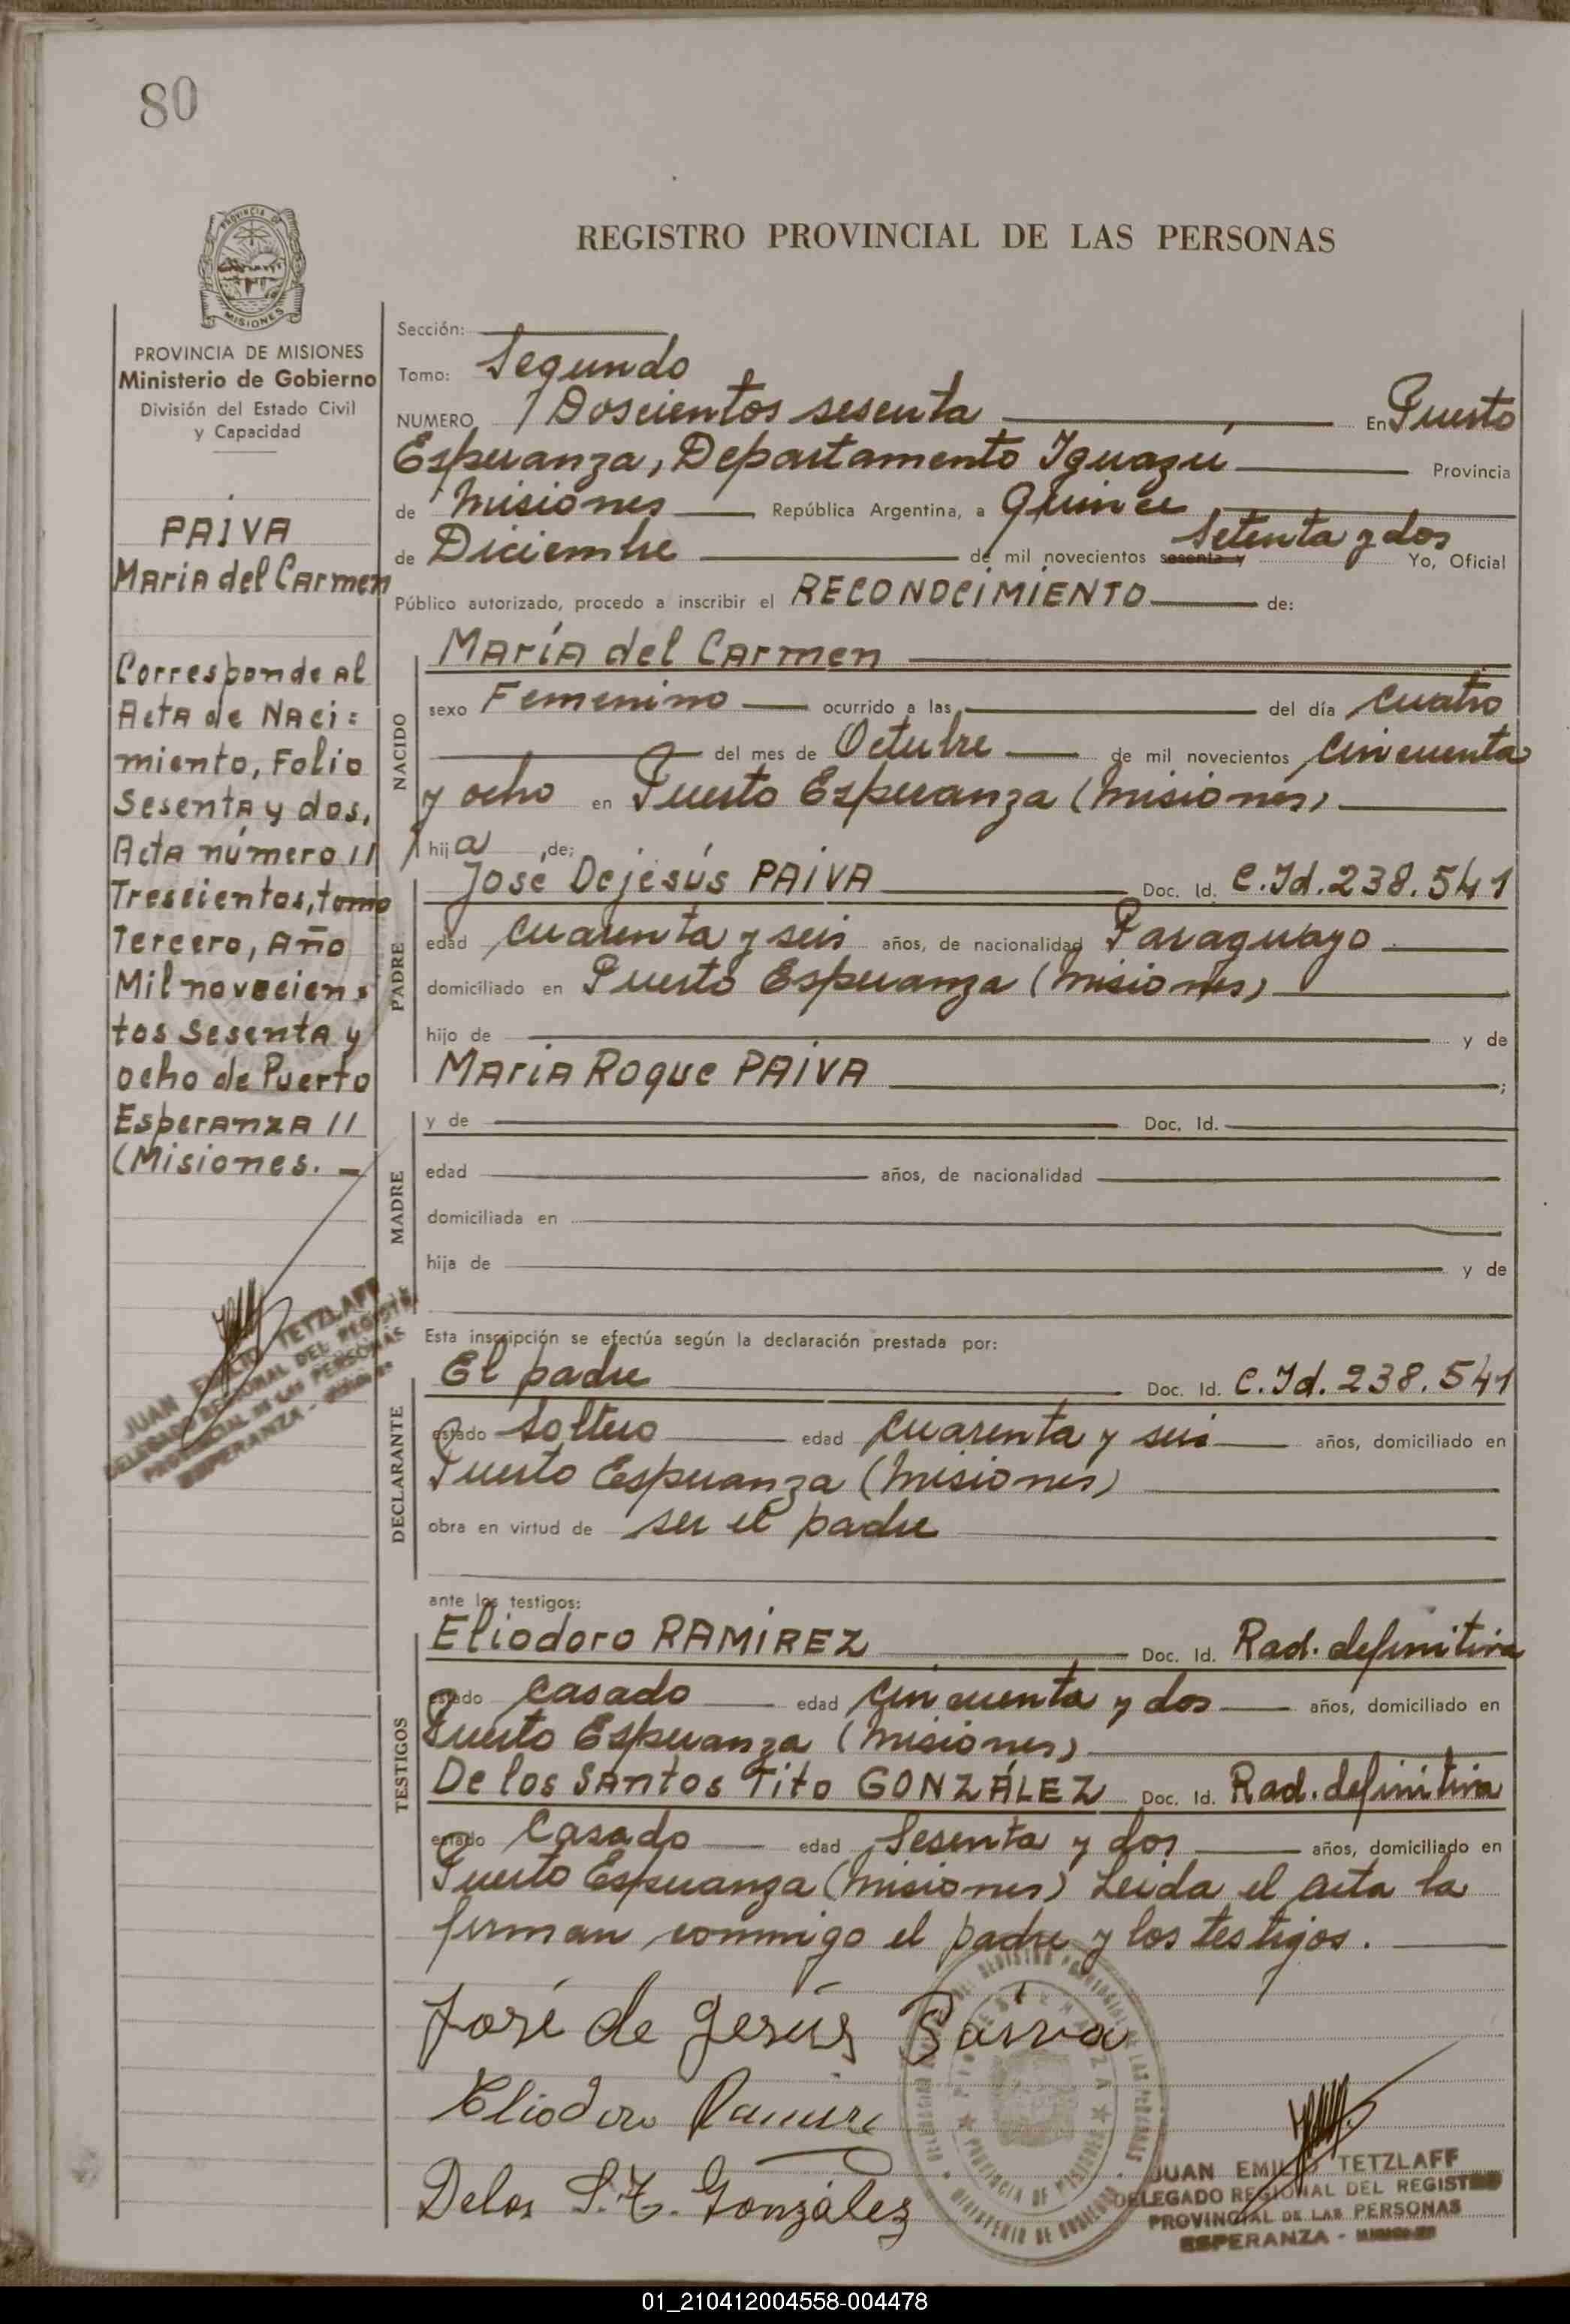 80
REGISTRO PROVINCIAL DE LAS PERSONAS
PROVINCIA DE MISIONES
PROVINCIA DE MISIONES
Ministerio de Gobierno
División del Estado Civil
y Capacidad
PAIVA
María del Carmen
Corresponde Al
Acta de Naci=
miento, Folio
Sesenta y dos,
Acta número //
Trescientos, tomo
Tercero, Año
Mil novecien=
tos sesenta y
ocho de Puerto
Esperanza //
(Misiones. —
JUAN EMILIO TETZLAFF
DELEGADO REGIONAL DEL REGISTRO
PROVINCIAL DE LAS PERSONAS
ESPERANZA -
Sección:
Tomo: Segundo
NUMERO Doscientos sesenta En Puerto
Esperanza, Departamento Iguazú Provincia
de Misiones República Argentina, a Quince
de Diciembre de mil novecientos sesenta y Setenta y dos Yo, Oficial
Público autorizado, procedo a inscribir el RECONOCIMIENTO de:
NACIDO
María del Carmen
sexo Femenino ocurrido a las del día cuatro
del mes de Octubre de mil novecientos cincuenta
y ocho en Puerto Esperanza (Misiones)
hija de:
PADRE
José Dejesús PAIVA Doc. Id. C.Id.238.541
edad cuarenta y seis años, de nacionalidad Paraguayo
domiciliado en Puerto Esperanza (Misiones)
hijo de y de
María Roque PAIVA ;
MADRE
y de Doc. Id.
edad años, de nacionalidad
domiciliada en
hija de y de
Esta inscripción se efectúa según la declaración prestada por:
DECLARANTE
El padre Doc. Id. C.Id.238.541
estado soltero edad cuarenta y seis años, domiciliado en
Puerto Esperanza (Misiones)
obra en virtud de ser el padre
ante los testigos:
TESTIGOS
Eliodoro RAMIREZ Doc. Id. Rad. definitiva
estado casado edad cincuenta y dos años, domiciliado en
Puerto Esperanza (Misiones)
De los Santos Tito GONZÁLEZ Doc. Id. Rad. definitiva
estado casado edad Sesenta y dos años, domiciliado en
Puerto Esperanza (Misiones) Leida el acta la
firman conmigo el padre y los testigos.
José de Jesús Paiva
Eliodoro Ramire
Delos S.T. González
PROVINCIA DE MISIONES
JUAN EMILIO TETZLAFF
DELEGADO REGIONAL DEL REGISTRO
PROVINCIAL DE LAS PERSONAS
ESPERANZA - MISIONES
01_210412004558-004478